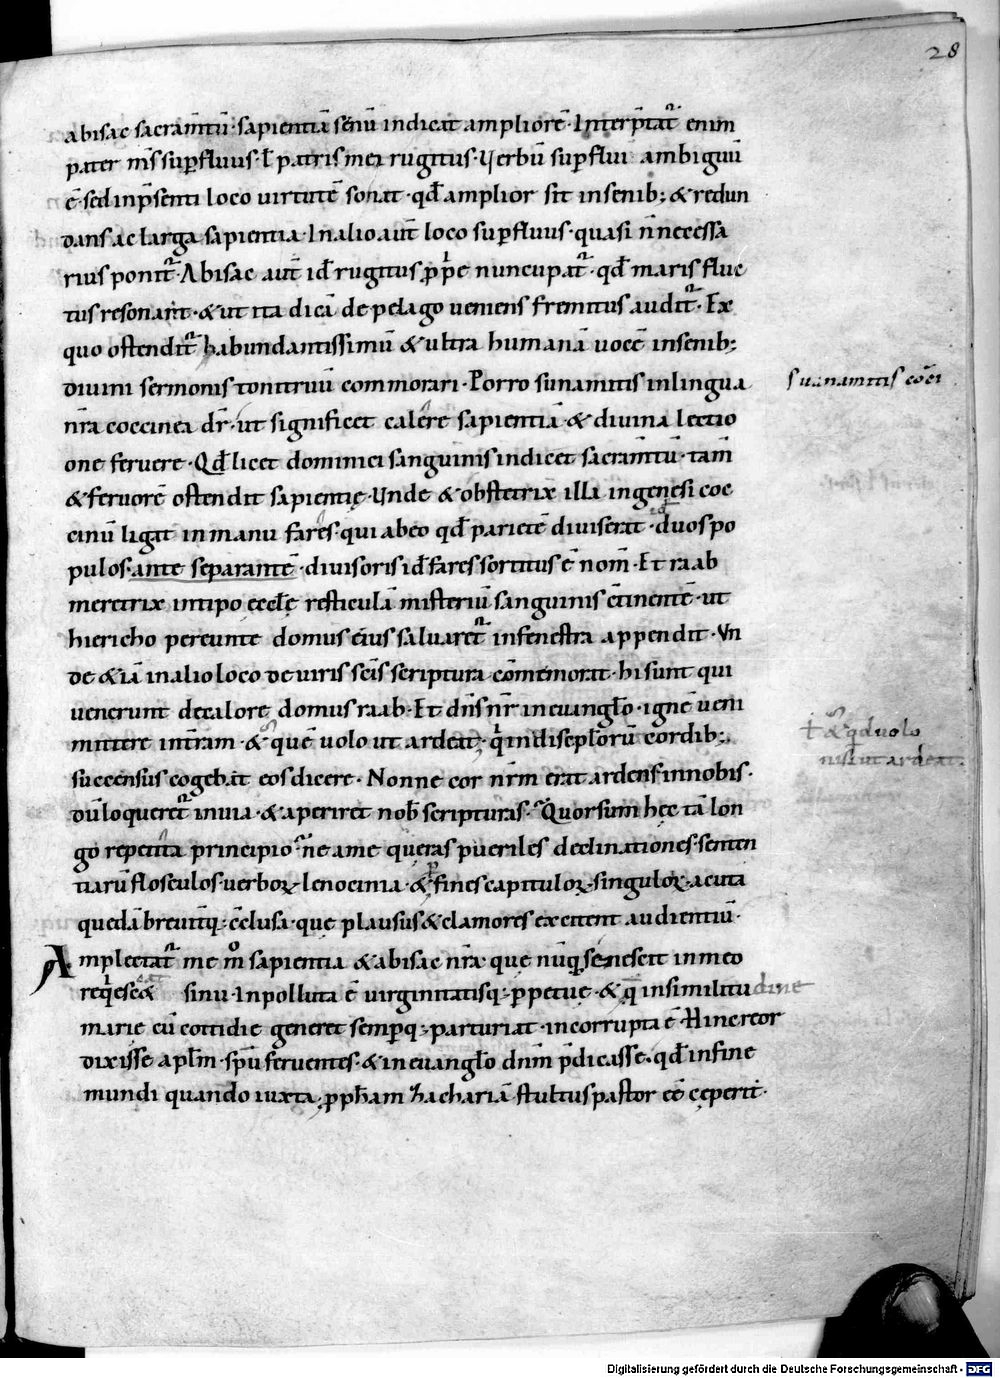 28
abisac sacram̄tū · sapientiā senū indicat ampliorē · Interp̄tat᷑ enim
pater m̄s sup̄fluus · ł patris mei rugitus · Verbū sup̄flui ambiguū
ē · sed inp̄senti loco uirtutē sonat · qđ amplior sit insenib; & redun
dans ac larga sapientia · Inalio aut̄ loco sup̄fluus · quasi n̄ necessa
rius ponit᷑ · Abisac aut̄ iđ rugitus p̄pͥe nuncupat᷑ · qđ maris fluc
tus resonant · & ut ita dicā de pelago ueniens fremitus audit᷑ · Ex
quo ostendit᷑ habundantissimū & ultra humanā uocē insenib;
diuini sermonis tonitruū commorari · Porro sunamitis inlingua
sunamitis cocci
nr̄a coccinea dr̄ · ut significet calere sapientiā & diuina lectio
one feruere · Qđ licet dominici sanguinis indicet sacram̄tū · tam̄
& feruorē ostendit sapientię · Unde & obstetrix illa ingenesi coc
cinū ligat in manu fares · qui abeo qđ parietē diuiserat · duos po
pulos · ante separantē · diuisoris iđ fares sortitus ē nom̄ · Et raab
meretrix intipo eccłę resticulā misteriū sanguinis c̄tinentē · ut
hiericho pereunte domus eius saluaret᷑ infenestra appendit · Un
de & iā inalio loco de uiris sc̄is scriptura cōmemorat · hi sunt qui
uenerunt decalore domus raab · Et dn̄s nr̄ in euangło · ignē ueni
mittere int̄ram · & quē uolo ut ardeat · qͥ indiscipłorū cordib;
ł & qd uolo
nisi ut ardeat.
succensus cogebat eos dicere · Nonne cor nr̄m erat ardens innobis ·
dū loqueret᷑ inuia · & aperiret nob̄ scripturas · Quorsum hęc tā lon
go repetita principio · ne a me queras pueriles declinationes · senten
tiarū flosculos · uerboꝝ lenocinia · & p fines capituloꝝ singuloꝝ · acuta
quedā breuit̄q; c̄clusa · que plausus & clamores excitent audientiū ·
Amplectat᷑ me m̊ sapientia & abisac nr̄a · que nūq̄ senescit in meo
reqͥescat sinu · Inpolluta ē uirginitatisq; p̄petuę · & q̄ insimilitudine
marie cū cottidie generet semp̄q; parturiat · incorrupta ē · Hinc reor
dixisse apłm · sp̄u feruentes · & in euangło dn̄m p̄dicasse · qđ infine
mundi quando iuxta p̄ph̄am zachariā stultus pastor eē cęperit ·
Digitalisierung gefördert durch die Deutsche Forschungsgemeinschaft - DFG